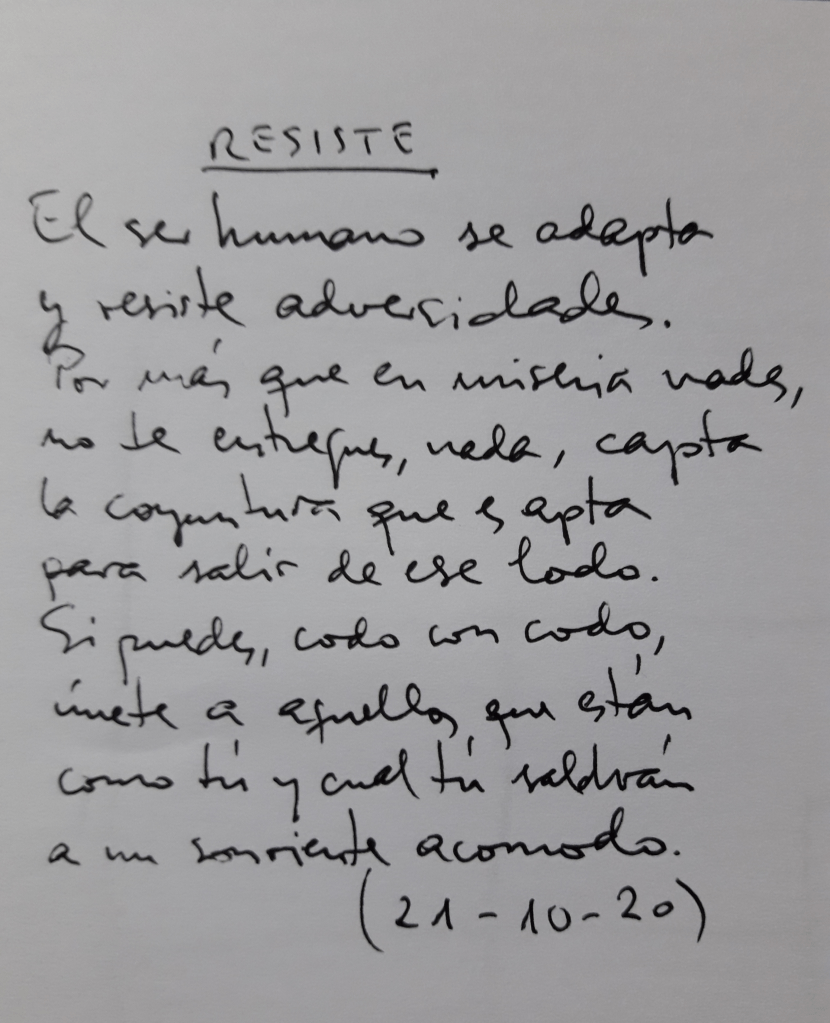 RESISTE
El ser humano se adapta
y resiste adversidades.
Por más que en miseria nades,
no te entregues, nada, capta
la coyuntura que es apta
para salir de ese lodo.
Si puedes, codo con codo,
únete a aquellos que están
como tú y cual tú saldrán
a un sonriente acomodo.
(21-10-20)